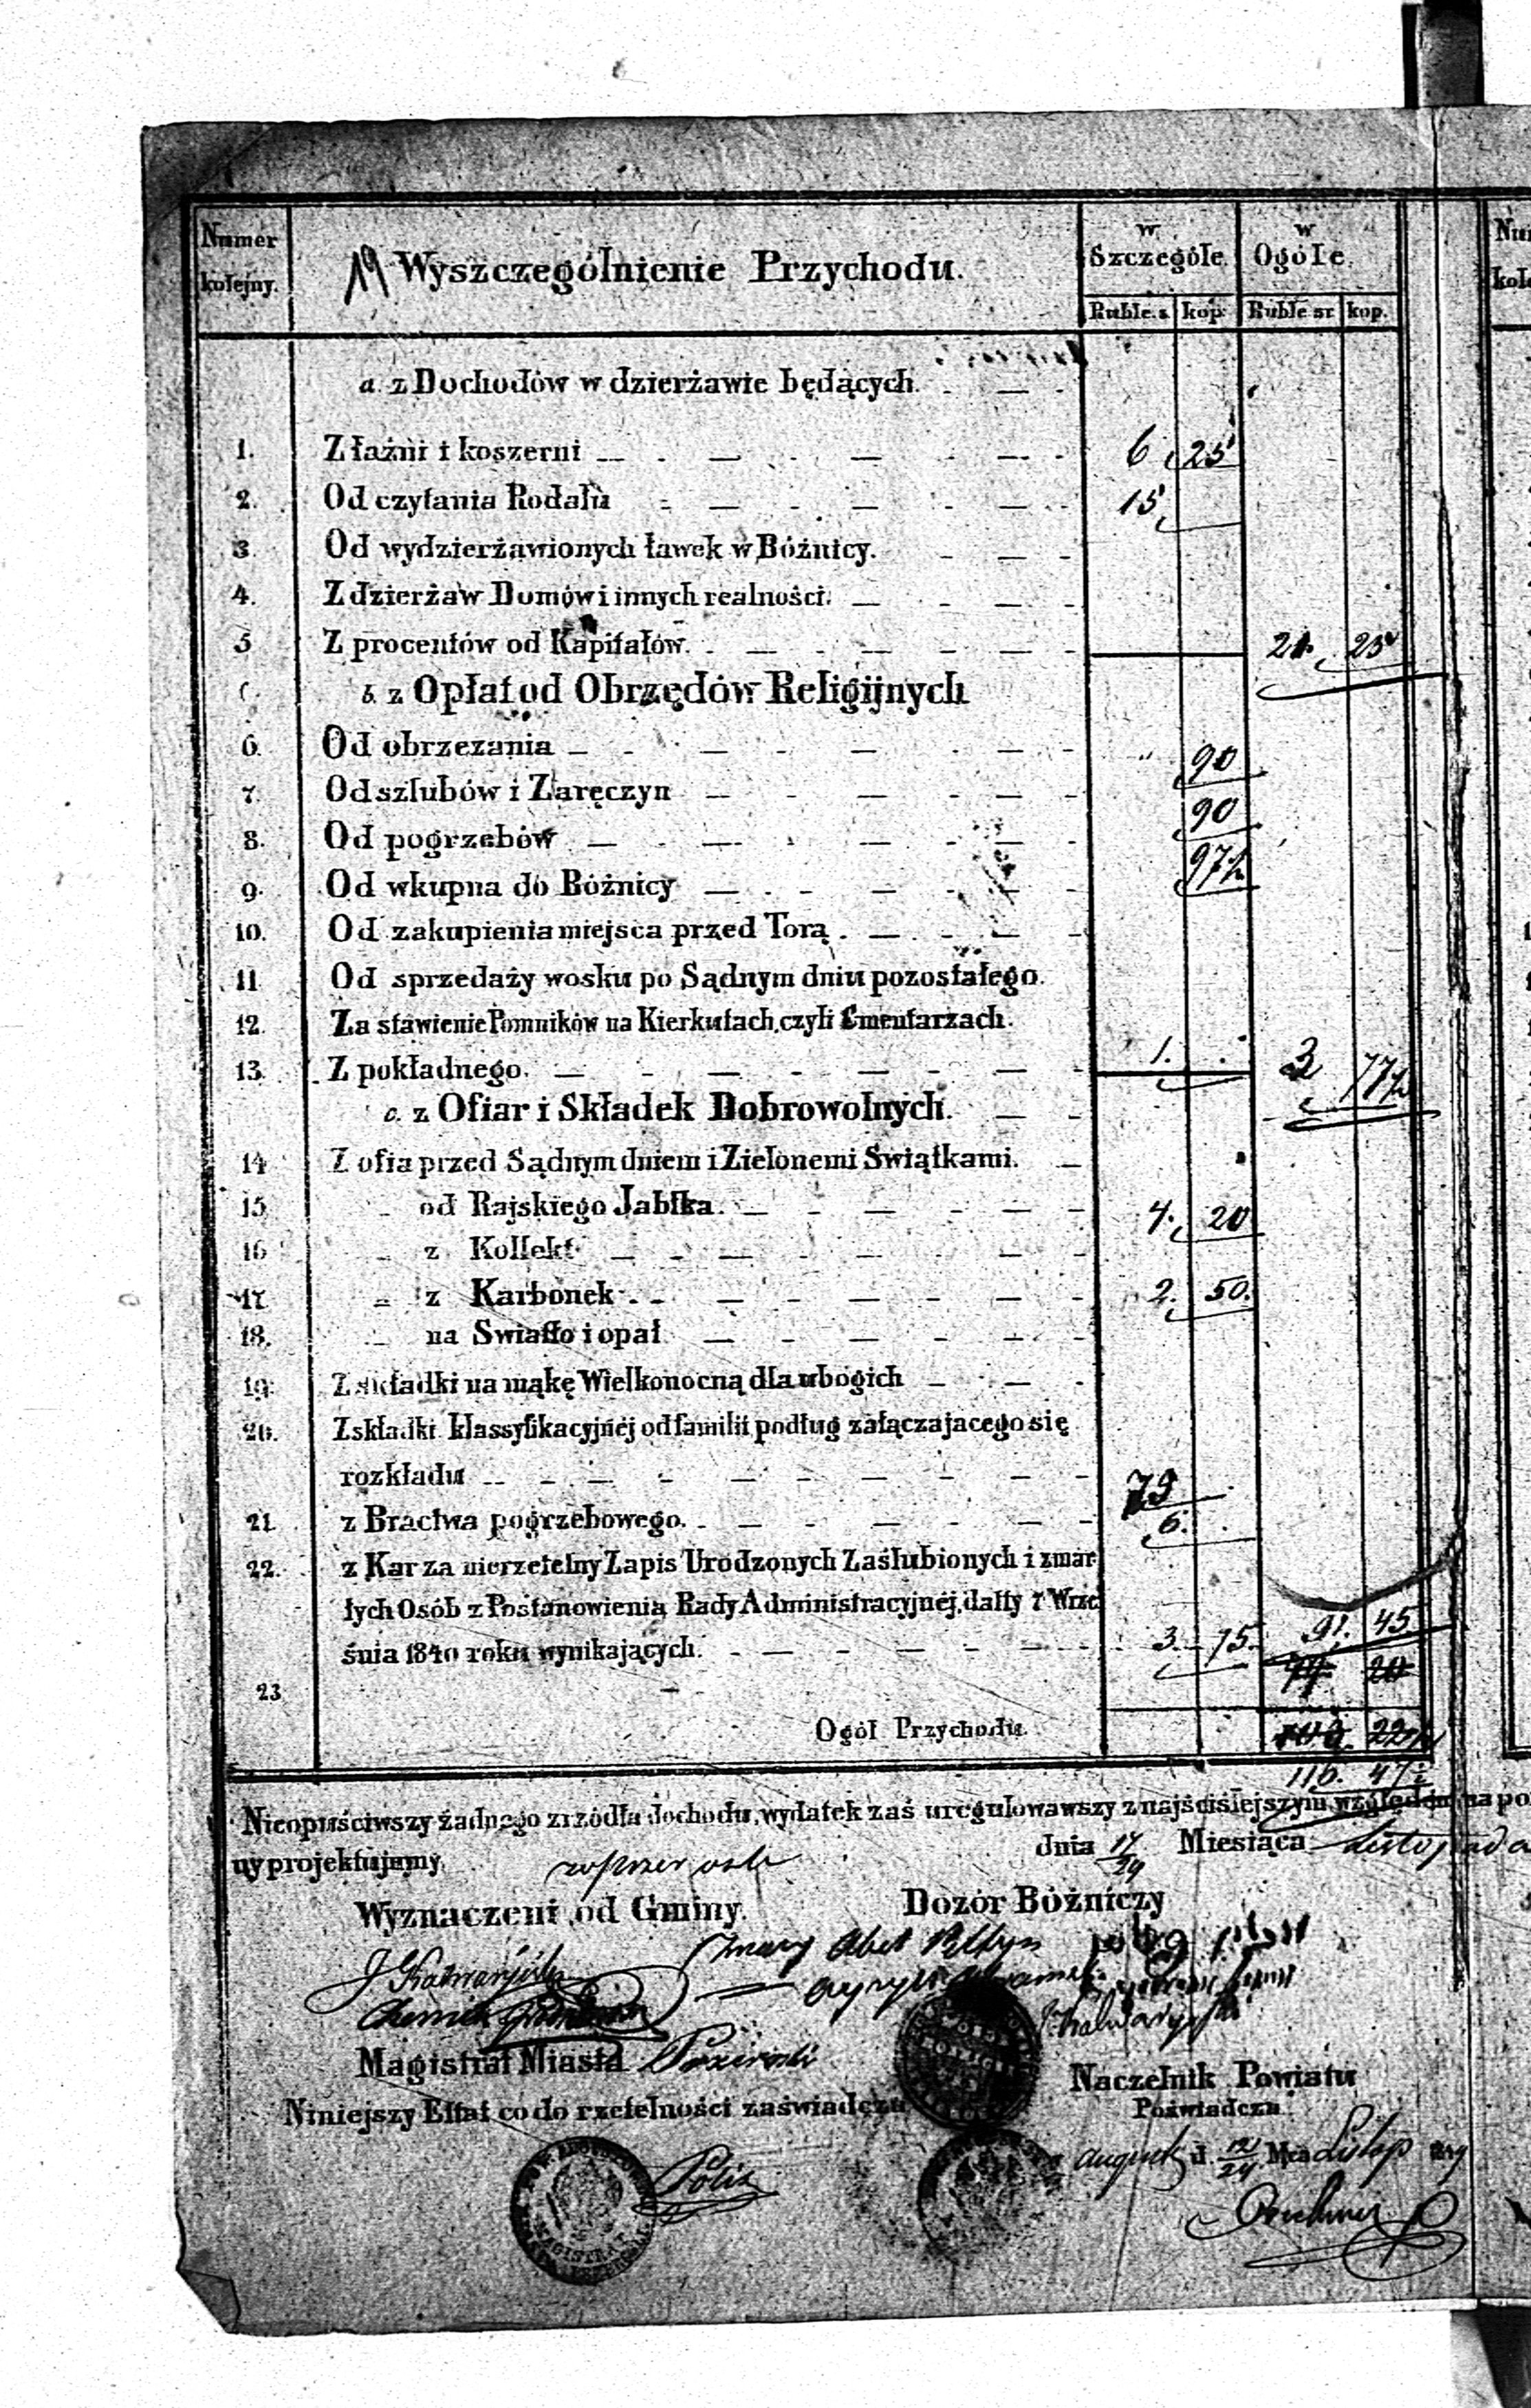 Numer kolejny.
19 Wyszczególnienie Przychodu.
w Szczególe. w Ogóle.
Ruble.s. kop: Ruble sr. kop.
a. z Dochodów w dzierżawie będących.
1. Z łaźni i koszerni 6 25
2. Od czytania Rodału 15
3 Od wydzierżawionych ławek w Bóżnicy.
4. Z dzierżaw Domów i innych realności.
5 Z procentów od Kapitałów. 21. 25
b. z Opłat od Obrzędów Religijnych
6. Od obrzezania " 90
7. Od szlubów i Zaręczyn 90
8. Od pogrzebów 97½
9. Od wkupna do Bóżnicy
10. Od zakupienia miejsca przed Torą.
11 Od sprzedaży wosku po Sądnym dniu pozostałego.
12. Za stawienie Pomników na Kierkutach, czyli Cmentarzach.
13. Z pokładnego. 1. 3 77½
c. z Ofiar i Składek Dobrowolnych.
14 Z ofia przed Sądnym dniem i Zielonemi Swiątkami.
15 od Rajskiego Jabłka. 4. 20
16 z Kollekt
17. z Karbonek 2. 50.
18. na Swiatło i opał
19. Z składki na mąkę Wielkonocną dla ubogich
20. Z składki klassyfikacyjnéj od familii podług załączajacego się
rozkładu 79
21. z Bractwa pogrzebowego. 6.
22. z Kar za nierzetelny Zapis Urodzonych Zaślubionych i zmar
łych Osób z Postanowienia Rady Administracyjnéj, datty 7 Wrze
śnia 1840 roku wynikających. 3. 75. 91. 45
20
23
Ogół Przychodu. 22½
116. 47½
Nieopuściwszy żadnego zrzódła dochodu, wydatek zaś uregulowawszy z najściślejszym względem na po
ny projektujemy. dnia 17/29 Miesiąca Listopada
Wyznaczeni od Gminy. Dozór Bóżniczy
Abel
Magistrat Miasta
Naczelnik Powiatu
Niniejszy Ettat co do rzetelności zaświadcza
Poświadcza
d. 12/24 Mca Listop